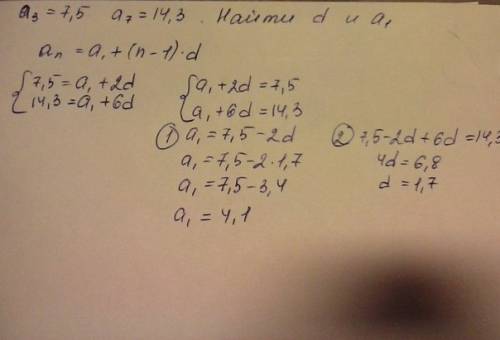 a₃ = 7,5 a₇ = 14,3 . Найти d и a₁
aₙ = a₁ + (n - 1) · d
{ 7,5 = a₁ + 2d
14,3 = a₁ + 6d
{ a₁ + 2d = 7,5
a₁ + 6d = 14,3
① a₁ = 7,5 - 2d
a₁ = 7,5 - 2 · 1,7
a₁ = 7,5 - 3,4
a₁ = 4,1
② 7,5 - 2d + 6d = 14,3
4d = 6,8
d = 1,7